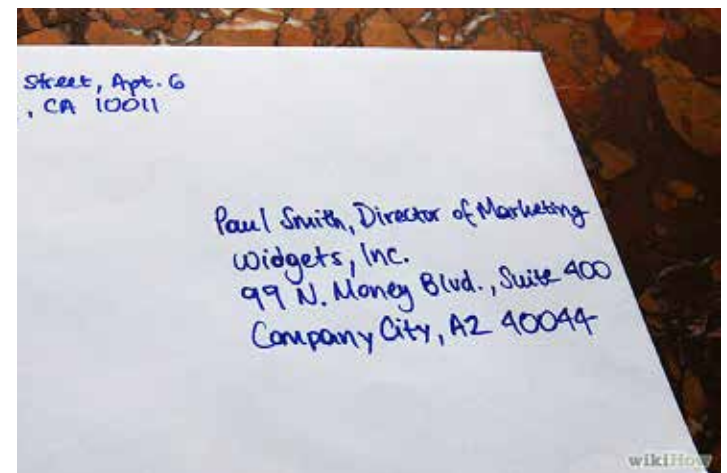 Street, Apt. 6
, CA 10011
Paul Smith, Director of Marketing
Widgets, Inc.
99 N. Money Blvd., Suite 400
Company City, AZ 40044
wikiHow